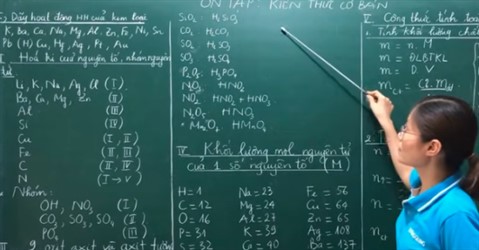 ÔN TẬP: KIẾN THỨC CƠ BẢN
Dãy hoạt động HH của kim loại
K, Ba, Ca, Na, Mg, Al, Zn, Fe, Ni, Sn
Pb (H) Cu, Hg, Ag, Pt, Au
II Hoá trị của nguyên tố, nhóm nguyên tử.
Li, K, Na, Ag, Cl (I)
Ba, Ca, Mg, Zn (II)
Al (III)
Si (IV)
Cu (I, II)
Fe (II, III)
C (II, IV)
N (I → V)
* Nhóm:
OH, NO₃ (I)
CO₃, SO₃, SO₄ (II)
PO₄ (III)
gốc axit và axit tương
SiO₂: H₂SiO₃
CO₂: H₂CO₃
SO₂: H₂SO₃
SO₃: H₂SO₄
P₂O₅: H₃PO₄
N₂O₃: HNO₂
NO₂: HNO₂ + HNO₃
N₂O₅: HNO₃
Mn₂O₇: HMnO₄
IV Khối lượng mol nguyên tử
của 1 số nguyên tố (M)
H = 1 Na = 23 Fe = 56
C = 12 Mg = 24 Cu = 64
O = 16 Al = 27 Zn = 65
P = 31 K = 39 Ag = 108
S = 32 Ca = 40 Ba = 137
V Công thức tính
1. Tính khối lượng chất
m = n. M
m = ĐLBTKL
m = D. V